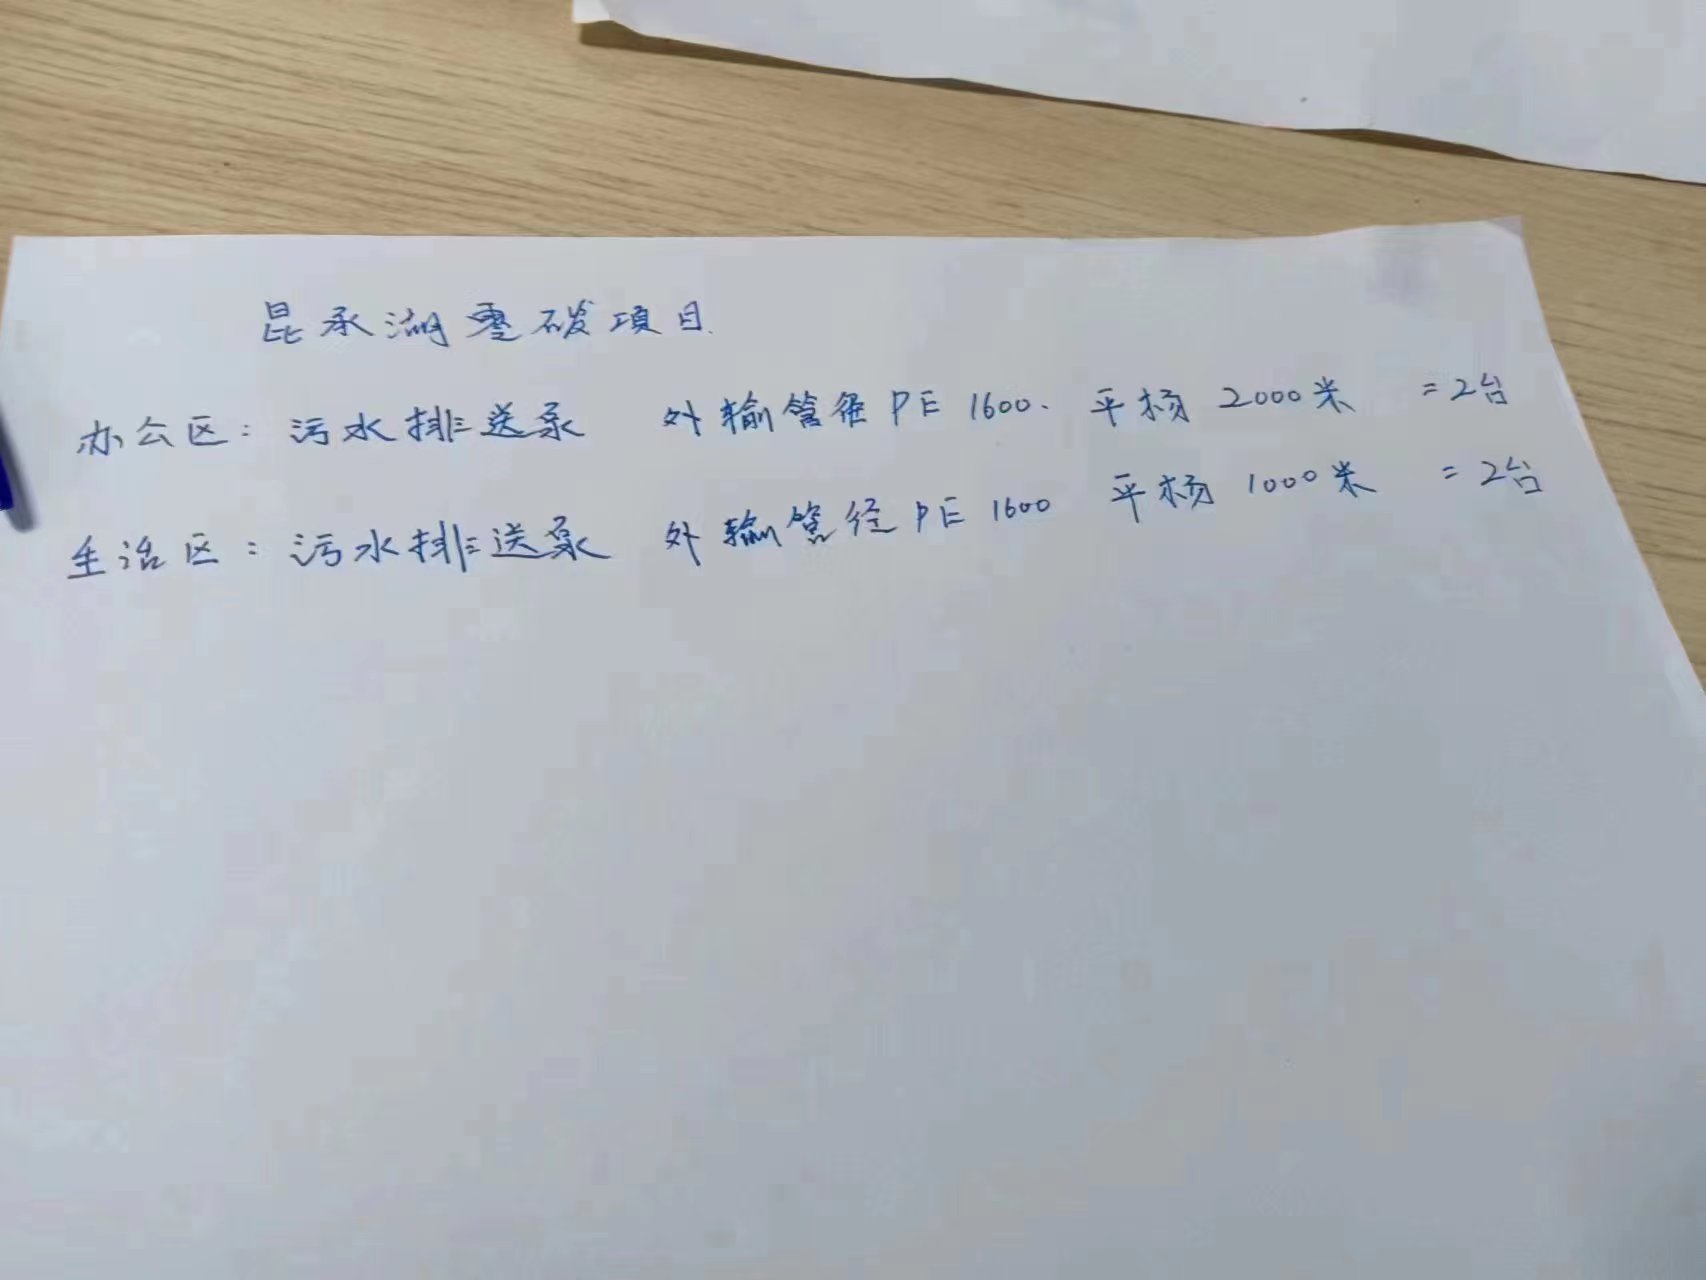 昆承湖零碳項目.
办公区: 污水排送泵 外输管径PE 1600. 平杨 2000米 =2台
生活区: 污水排送泵 外输管径PE 1600 平杨 1000米 =2台